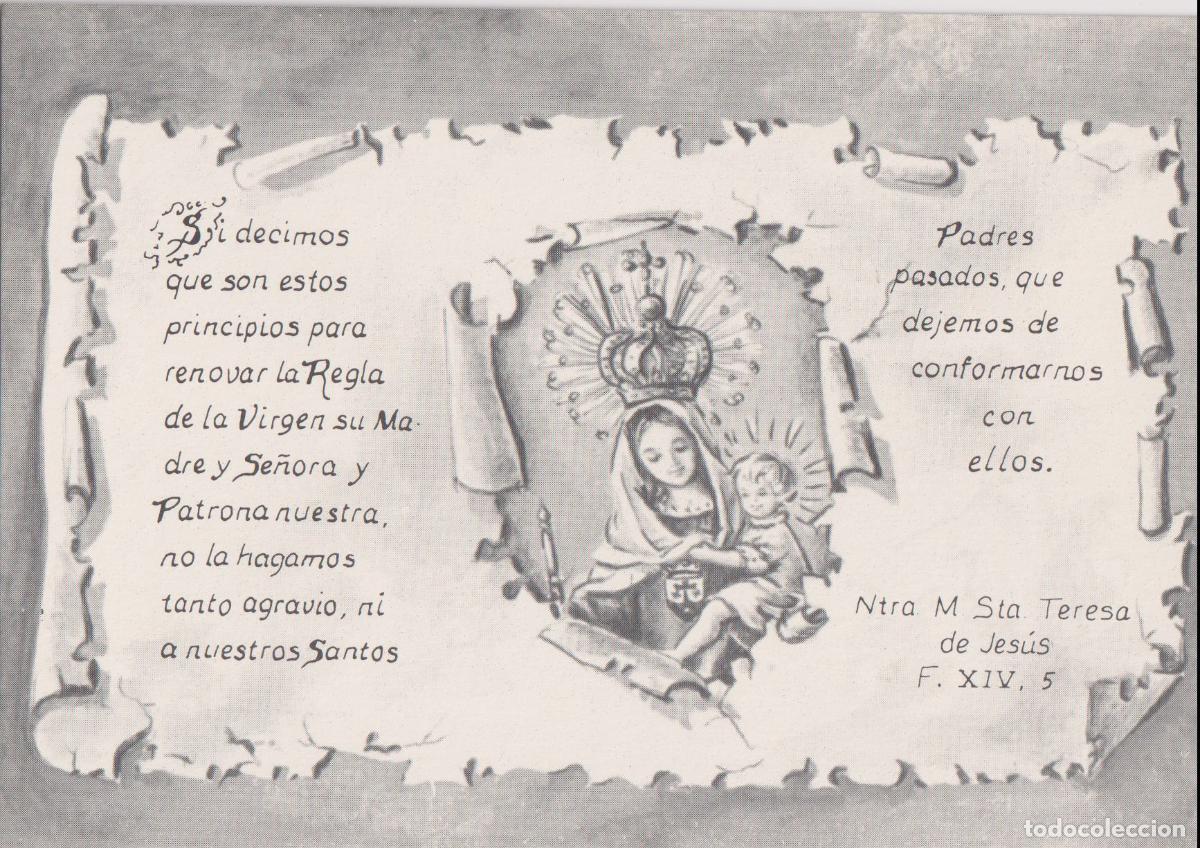 Si decimos
que son estos
principios para
renovar la Regla
de la Virgen su Ma-
dre y Señora y
Patrona nuestra,
no la hagamos
tanto agravio, ni
a nuestros Santos
Padres
pasados, que
dejemos de
conformarnos
con
ellos.
Ntra M Sta. Teresa
de Jesús
F. XIV, 5
todocoleccion